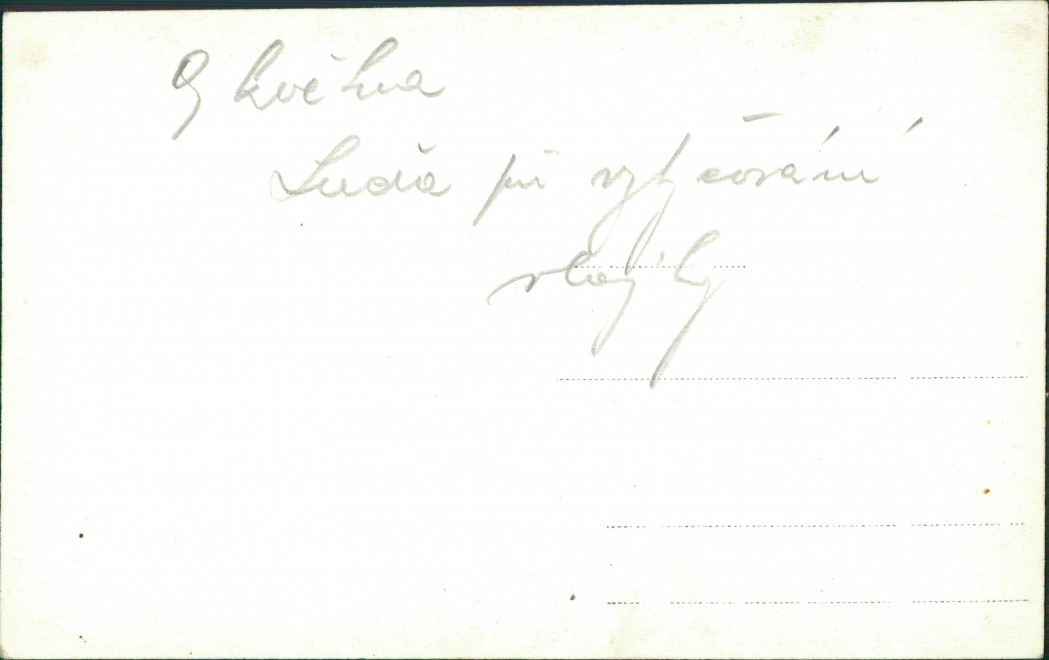 9 května
Luďa při vytyčování
vlajky